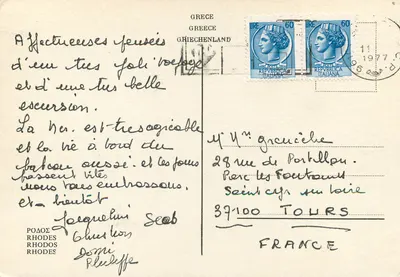 GRECE
GREECE
GRIECHENLAND
Affectueuses pensées
d'un très joli voyage
et d'une très belle
excursion.
La mer est très agréable
et la vie à bord du
bateau aussi. et les jours
passent vite
nous vous embrassons.
et a bientôt
Jacqueline
Philippe
60
60
11
1977
M. Mme
28 rue de Portillon
Parc les Fontaines
Saint cyr sur Loire
37100 TOURS
FRANCE
ΡΟΔΟΣ
RHODES
RHODOS
RHODES